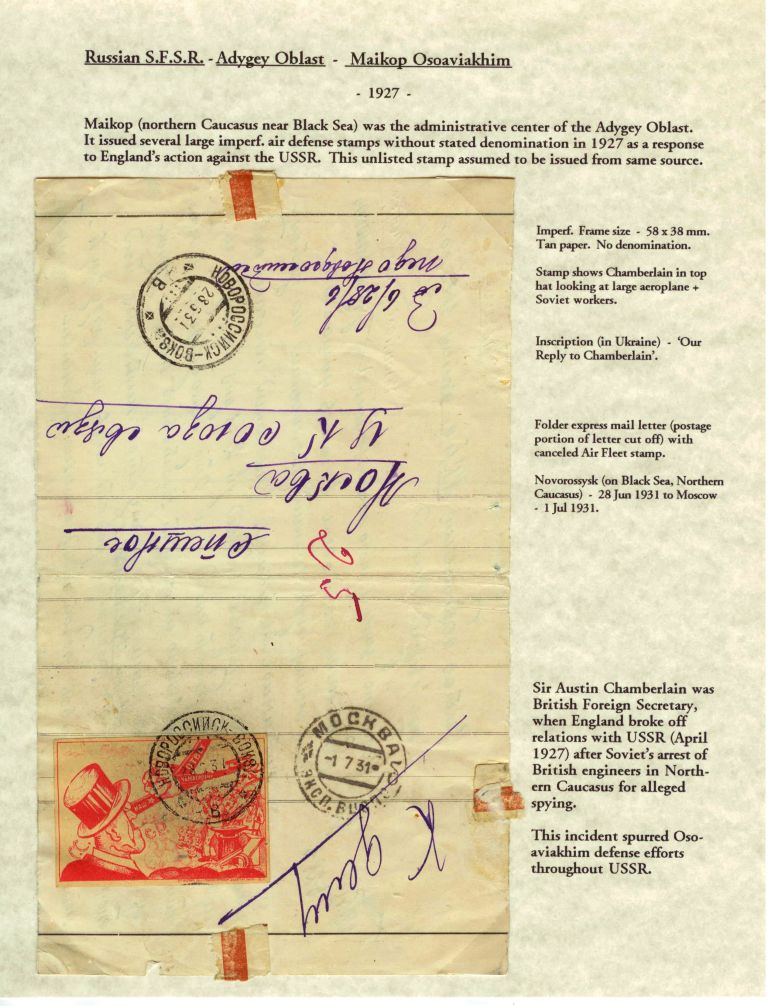 Russian S.F.S.R. - Adygey Oblast - Maikop Osoaviakhim
- 1927 -
Maikop (northern Caucasus near Black Sea) was the administrative center of the Adygey Oblast.
It issued several large imperf. air defense stamps without stated denomination in 1927 as a response
to England's action against the USSR. This unlisted stamp assumed to be issued from same source.
Imperf. Frame size - 58 x 38 mm.
Tan paper. No denomination.
Stamp shows Chamberlain in top
hat looking at large aeroplane +
Soviet workers.
Inscription (in Ukraine) - 'Our
Reply to Chamberlain'.
Folder express mail letter (postage
portion of letter cut off) with
canceled Air Fleet stamp.
Novorossysk (on Black Sea, Northern
Caucasus) - 28 Jun 1931 to Moscow
- 1 Jul 1931.
Sir Austin Chamberlain was
British Foreign Secretary,
when England broke off
relations with USSR (April
1927) after Soviet's arrest of
British engineers in North-
ern Caucasus for alleged
spying.
This incident spurred Oso-
aviakhim defense efforts
throughout USSR.
НОВОРОССИЙСК-ВОКЗ
В
спешное
Москва
ЦК союза связи
25
НОВОРОССИЙСК-ВОКЗ
МОСКВА
-1 7 31
К делу